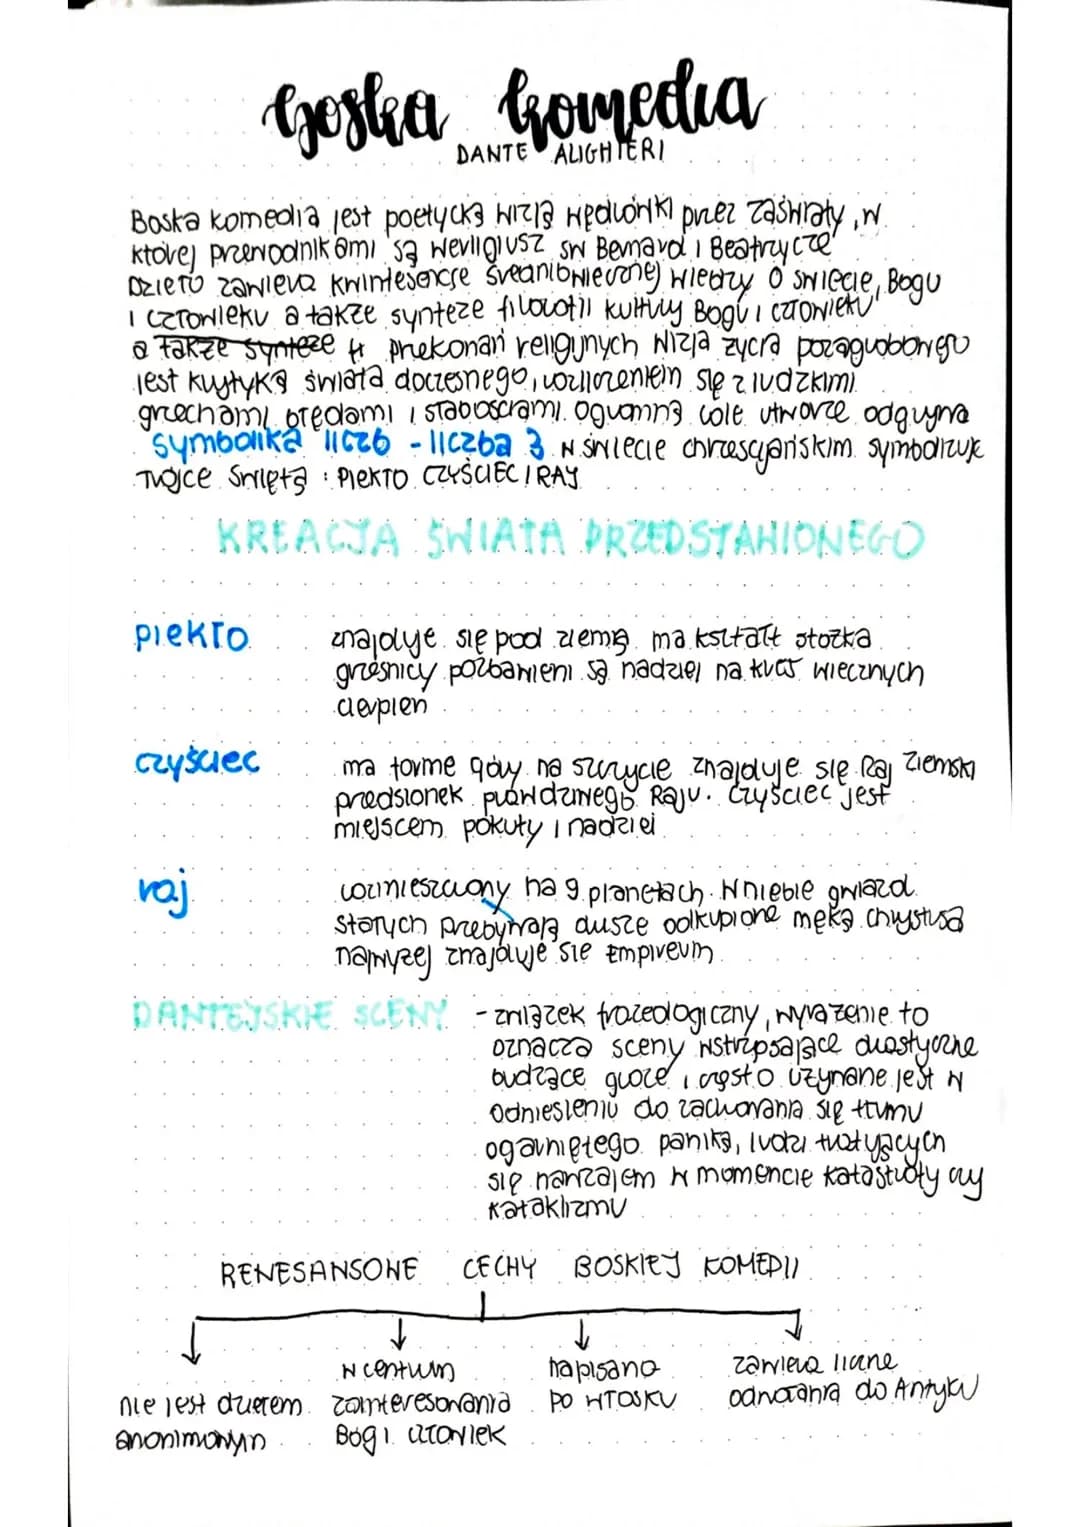 Boska komedia
DANTE ALIGHIERI
Boska komedia jest poetycką wizją wędrówki przez zaświaty, w
której przewodnikami są Wergiliusz św Bernard i Beatrycze
Dzieło zawiera kwintesencje średniowiecznej wiedzy o świecie, Bogu
i człowieku a także synteze filozofii kultury Bogu i człowieku
a także synteze przekonań religijnych wizja życia pozagrobowego
jest krytyką świata doczesnego, rozliczeniem się z ludzkimi
grzechami błędami i słabościami. Ogromną role utworze odgryna
symbolika liczb - liczba 3 w świecie chrześcijańskim symbolizuje
Trójce Świętą : PIEKŁO CZYŚCIEC I RAJ
KREACJA ŚWIATA PRZEDSTAWIONEGO
piekło znajduje się pod ziemią ma kształt stożka
grzesnicy pozbawieni są nadziei na kres wiecznych
cierpień
czyściec ma forme góry na szczycie znajduje się Raj Ziemski
predsionek prawdziwego Raju. Czyściec jest
miejscem pokuty i nadziei
raj rozmieszczony na 9 planetach. W niebie gwiazd
stałych przebywają dusze odkupione męką chrystusa
najwyżej znajduje sie Empireum
DANTEJSKIE SCENY - związek frazeologiczny, wyrażenie to
oznacza sceny wstrząsające drastyczne
budzące groze i często używane jest w
odniesieniu do zachowania się tłumu
ogarniętego paniką, ludzi tratujących
się nawzajem w momencie katastrofy czy
kataklizmu
RENESANSOWE CECHY BOSKIEJ KOMEDII
nie jest dziełem
anonimowym
w centrum
zainteresowania
Bóg i człowiek
napisana
po włosku
zawiera liczne
odwołania do Antyku